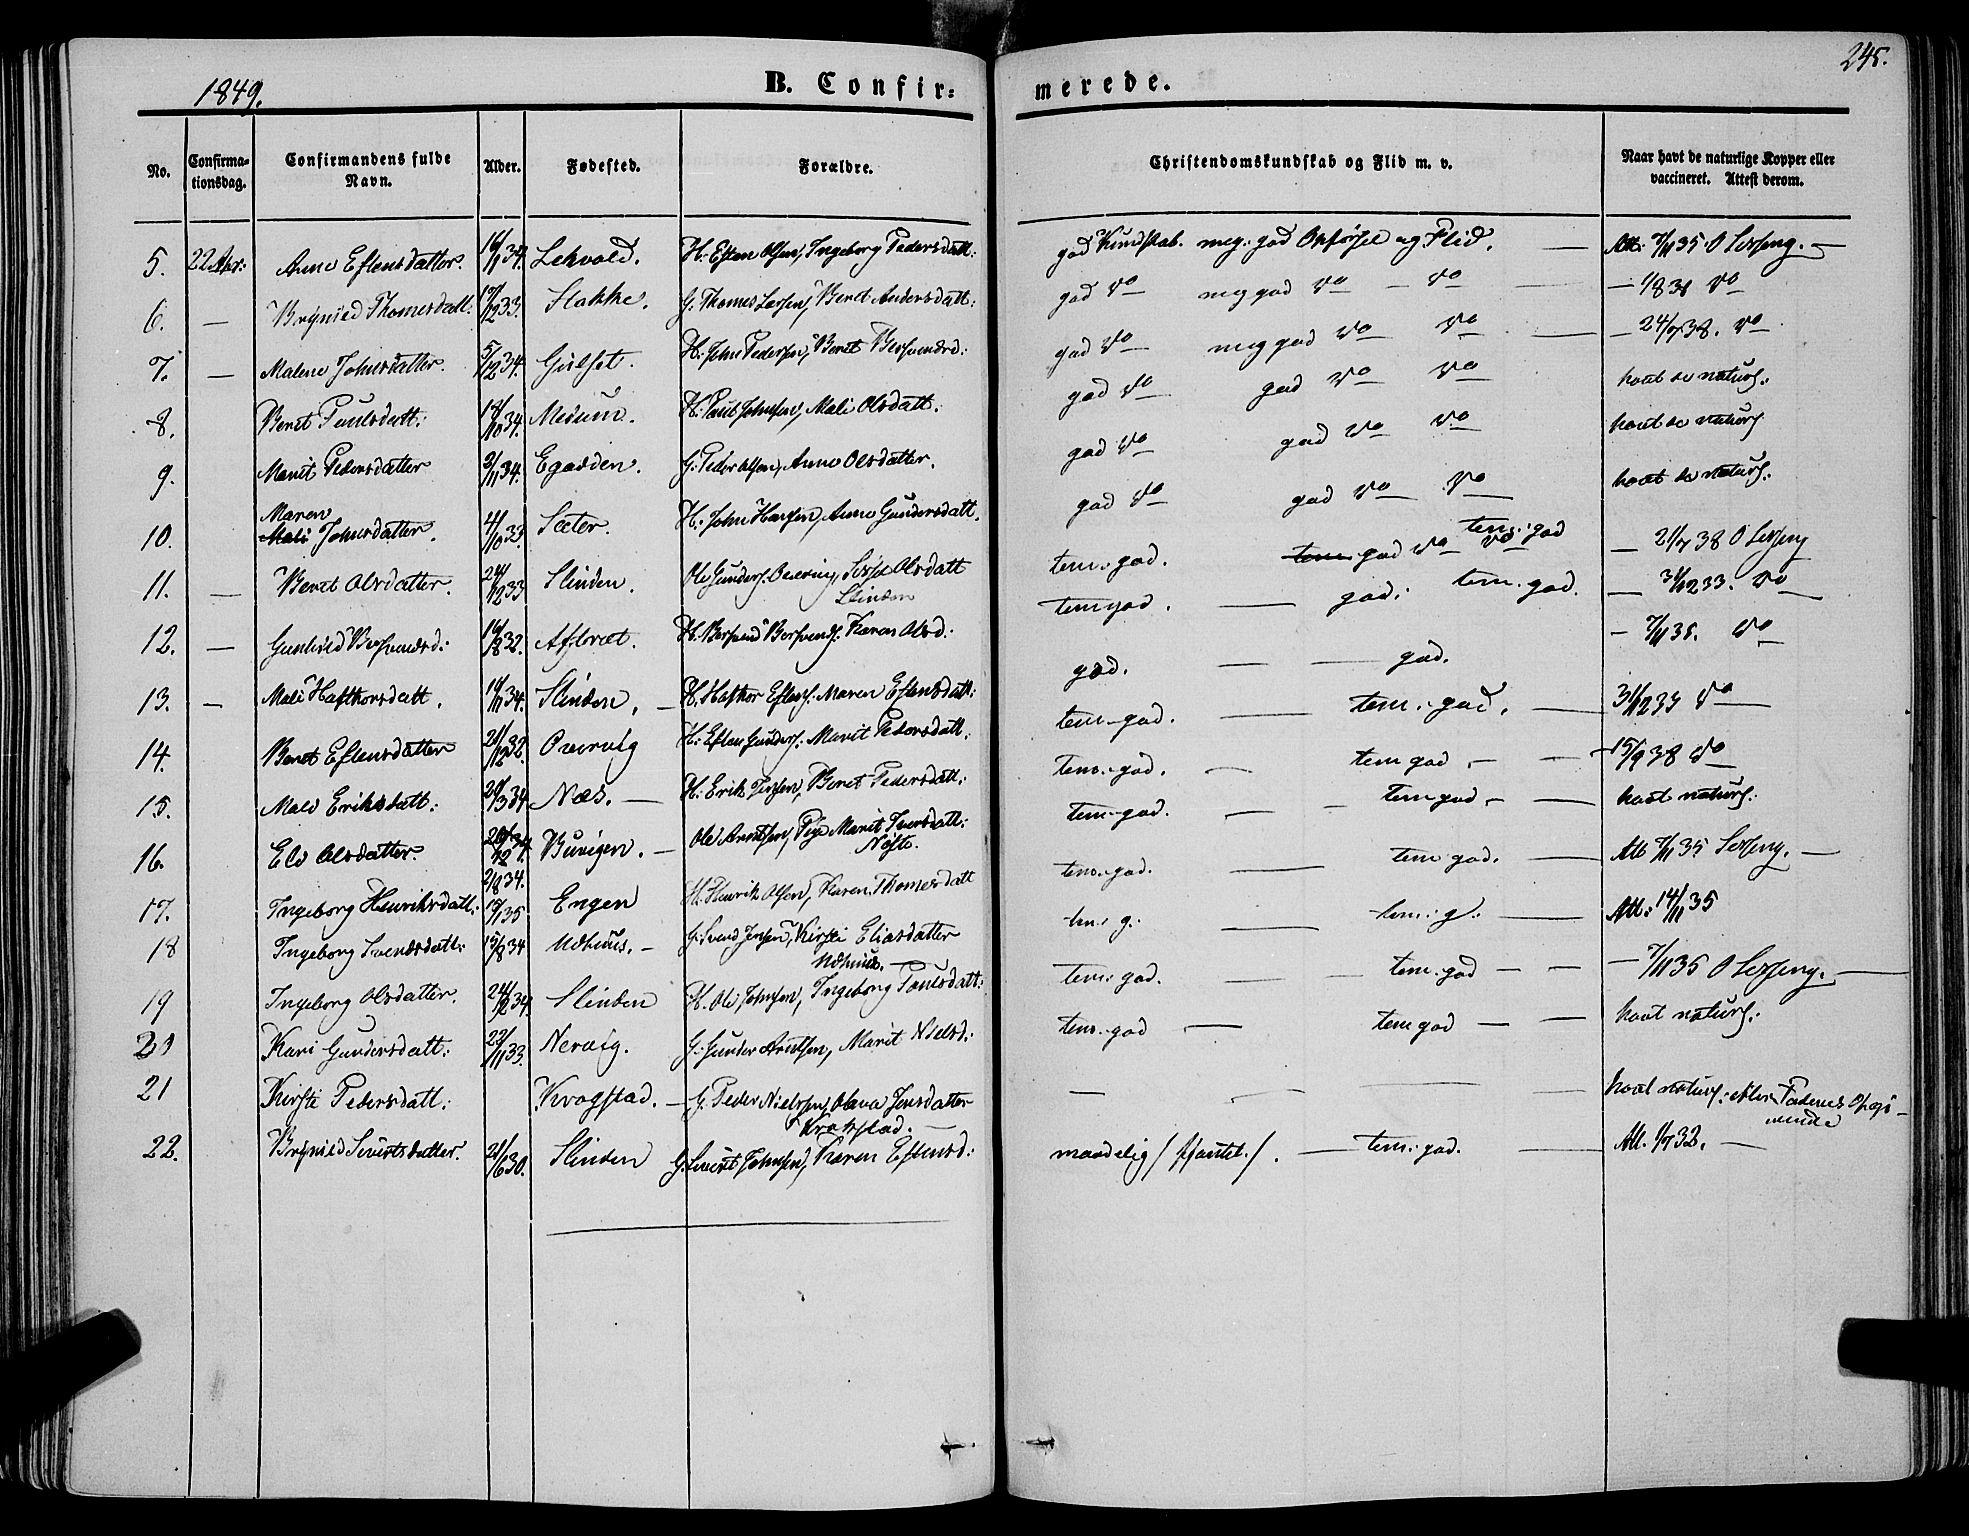 1849.
B. Confir=
merede.
245.
No.
Confirma-
tionsdag.
Confirmandens fulde
Navn.
Alder.
Fødested.
Forældre.
Christendomskundskab og Flid m. v.
Naar havt de naturlige Kopper eller
vaccineret. Attest derom.
5. 22 Apr: Anne Estensdatter. 16/1 34. Lekvold. H: Esten Olsen, Ingeborg Pedersdatt: god Kundskab. meg. god Opførsel og Flid. — Att: 7/11 35 O Sesseng. —
6. — Brynild Thomesdatt: 12 33. Stokke. G. Thomes Larsen, Beret Andersdatt: god do meg god do — do — do
7. — Malene Johnsdatter. 5/12 34. Gulset. H. John Pedersen, Beret god do meg god do do — 24/7 38. do
8. Beret Paulsdatt: 10 34. Moslum. H: Paul Johnsen, Mali Olsdatt. god do god do do havt de naturl:
9. Marit Pedersdatter 2/11 34. Egadden. G: Peder Olsen, Anne Olsdatter. god do god do do havt de naturl
10. Maren
Mali Johnsdatter. 4/10 33. Sæter. H: John Hansen, Anne Gundersdatt. god do god do do havt de naturl:
11. — Beret Olsdatter. 24/12 33 Slinden. Ole Gunders. Overvig, Olsdatt
Slinden tem. god. tem. god do do tem: god — 21/7 38 O Sesseng
12. — Gunhild 16/8 32. Aftret. H. Karen Olsd: tem god. — god. tem. god. — 33. do
13. — Mali Hafthorsdatt. 34. Slinden. — H. Hafthor Estens. Maren Estensdatt: god. — — god. — 7/11 35. do
14. Beret Estensdatter 21/12 32. Overvig H: Esten Gunders. Marit Pedersdatt. tem. god. — tem. god. — 33 do
15. Mali Eriksdatt: 20/3 34 Næs. — H: Erik Jensen, Beret Pedersdatt: tem. god. — tem god — — 15/9 38 do
16. Eli Olsdatter. 34. Burigen. — Ole Arntsen, Pige Marit Iversdatt:
tem. god. — tem god — — havt naturl:
17. Ingeborg Henriksdatt: 35 Engen H: Henrik Olsen, Karen Thomesdatt tem. god. — tem god. — Att 7/11 35 Sesseng. —
18 Ingeborg Svendsdatt: 15/8 34 Udhuus. — G: Svend Jensen, Kirsti Eliasdatter
Udhuus. — tem. g. — tem. g. — Att: 14/11 35
19 Ingeborg Olsdatter. 24/2 34. Slinden H. Ole Johnsen, Ingeborg Paulsdatt: tem: god. — tem. god — — — 7/11 35 O Sesseng. —
20 Kari Gundersdatt: 23/11 33. Nervig. G: Gunder Arntsen, Marit Nielsd: tem. god — tem god — — havt naturl:
21 Kirsti Pedersdatt: Krogstad. — G. Peder Nielssen, Olava Jensdatter
Krokstad. — — — — — havt naturl: efter Faderens Opgi-
vende
22. Brynild Sivertsdatter. 21/6 30. Slinden G. Sivert Johnsen, Karen Estensd: maadelig / / . — tem. god. — Att. 1/7 32. —